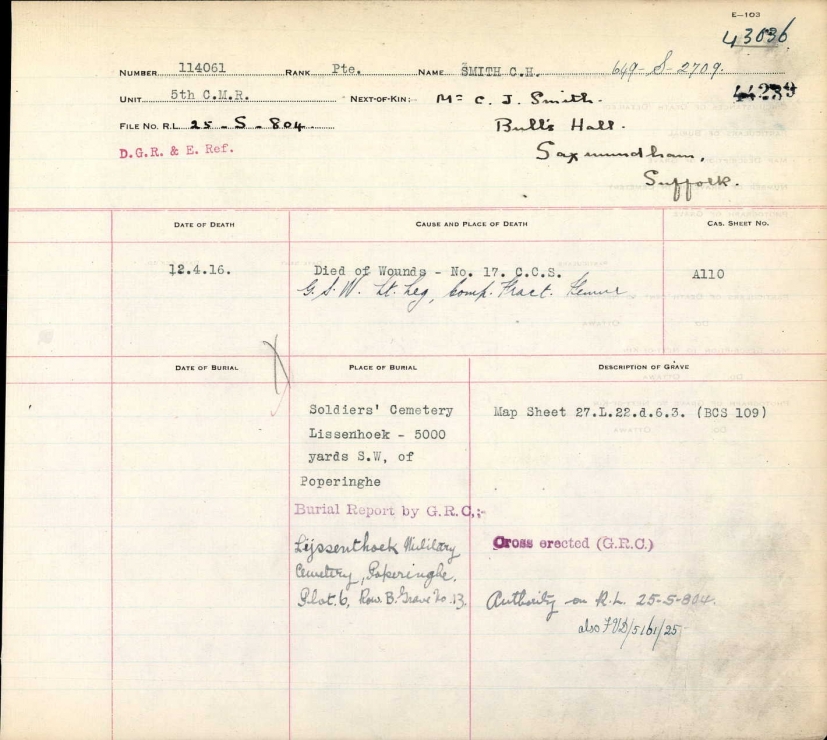 E—103
43036
NUMBER 114061 RANK Pte. NAME SMITH C.H. 649-S-2709.
44239
UNIT 5th C.M.R. NEXT-OF-KIN: Mr C. J. Smith.
FILE NO. R.L. 25-S-804 Bull's Hall.
D.G.R. & E. Ref. Saxmundham,
Suffolk.
DATE OF DEATH CAUSE AND PLACE OF DEATH CAS. SHEET NO.
12.4.16. Died of Wounds - No. 17. C.C.S. A110
G.S.W. Lt. Leg, Comp. Fract. Femur
DATE OF BURIAL PLACE OF BURIAL DESCRIPTION OF GRAVE
Soldiers' Cemetery Map Sheet 27.L.22.d.6.3. (BCS 109)
Lissenhoek - 5000
yards S.W, of
Poperinghe
Burial Report by G.R.C,;-
Lijssenthoek Military Cross erected (G.R.C.)
Cemetery, Poperinghe.
Plot.6, Row. B. Grave No.13. Authority on R.L. 25-S-804.
also FVD/5161/25